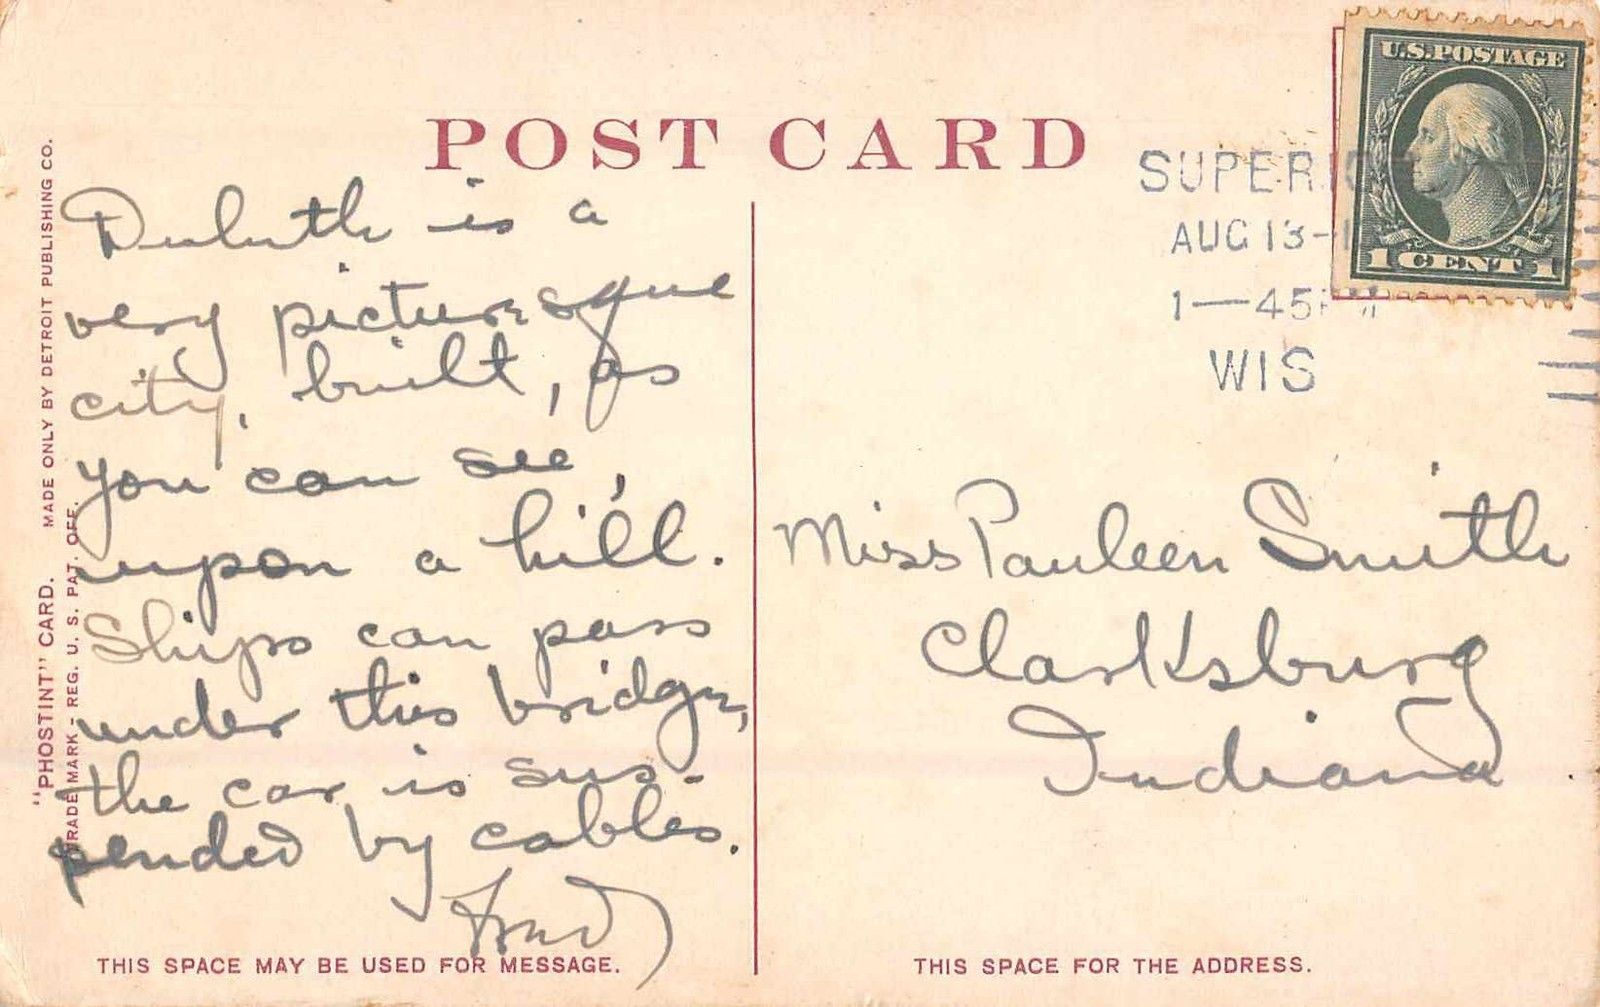 POST CARD
U.S. POSTAGE
1 CENT 1
SUPERIO
AUG 13-1
1—45PM
WIS
Duluth is a
very picturesque
city, built, as
you can see,
upon a hill.
Ships can pass
under this bridge,
the car is sus-
pended by cables.
Fred
Miss Pauleen Smith
Clarksburg
Indiana
"PHOSTINT" CARD. MADE ONLY BY DETROIT PUBLISHING CO.
TRADE MARK - REG. U. S. PAT. OFF.
THIS SPACE MAY BE USED FOR MESSAGE.
THIS SPACE FOR THE ADDRESS.